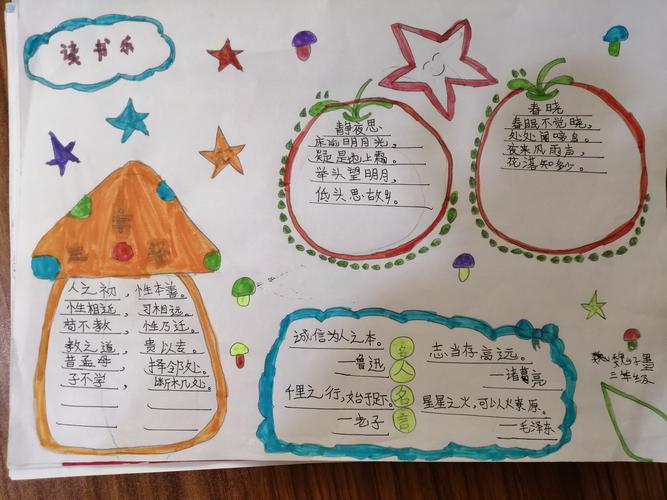 读书乐
静夜思
床前明月光，
疑是地上霜。
举头望明月，
低头思故乡。
春晓
春眠不觉晓，
处处闻啼鸟。
夜来风雨声，
花落知多少。
人之初，性本善。
性相近，习相远。
苟不教，性乃迁。
教之道，贵以专。
昔孟母，择邻处。
子不学，断机处。
名人名言
诚信为人之本。
—鲁迅
志当存高远。
—诸葛亮
千里之行，始于足下。
—老子
星星之火，可以燎原。
—毛泽东
三年级